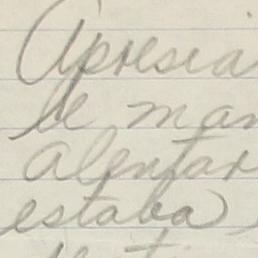 Apresia
le man
alentar
estaba